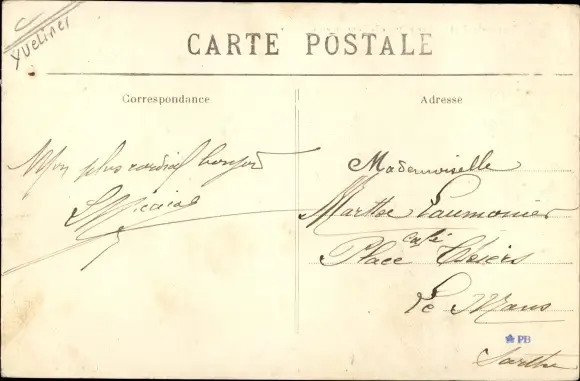 Yvelines
CARTE POSTALE
Correspondance
Adresse
Mon plus cordial bonjour
Mademoiselle
Marthe Laumonier
café
Place Thiers
Le Mans
PB
Sarthe